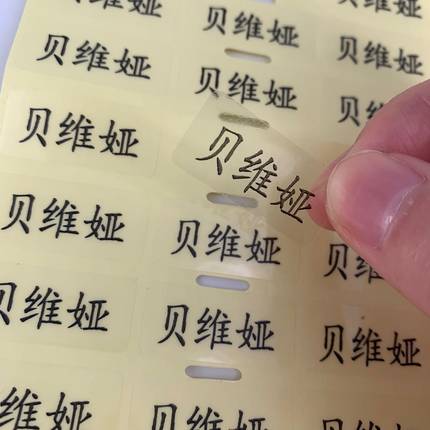 贝维娅
贝维娅
贝维娅
贝维娅
贝维娅
贝维娅
贝维娅
贝维
贝维娅
贝维娅
贝维娅
贝
贝维娅
贝维娅
贝维娅
维娅
贝维娅
贝维娅